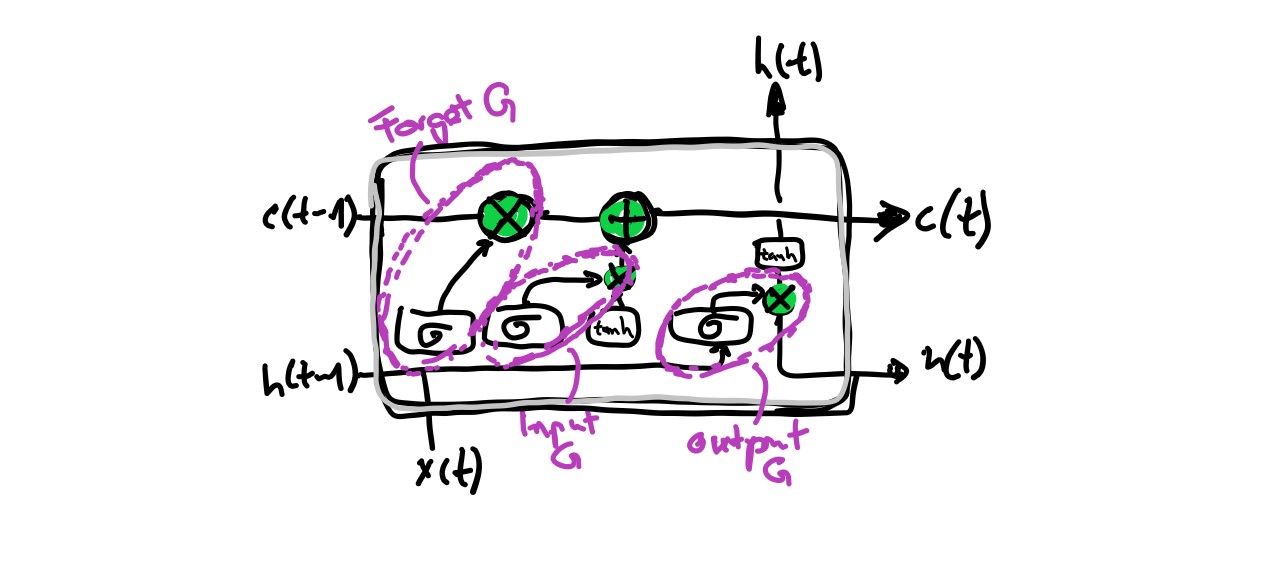 h(t)
Forget G
c(t-1)
c(t)
tanh
σ
σ
tanh
σ
h(t-1)
h(t)
Input
G
Output
G
x(t)